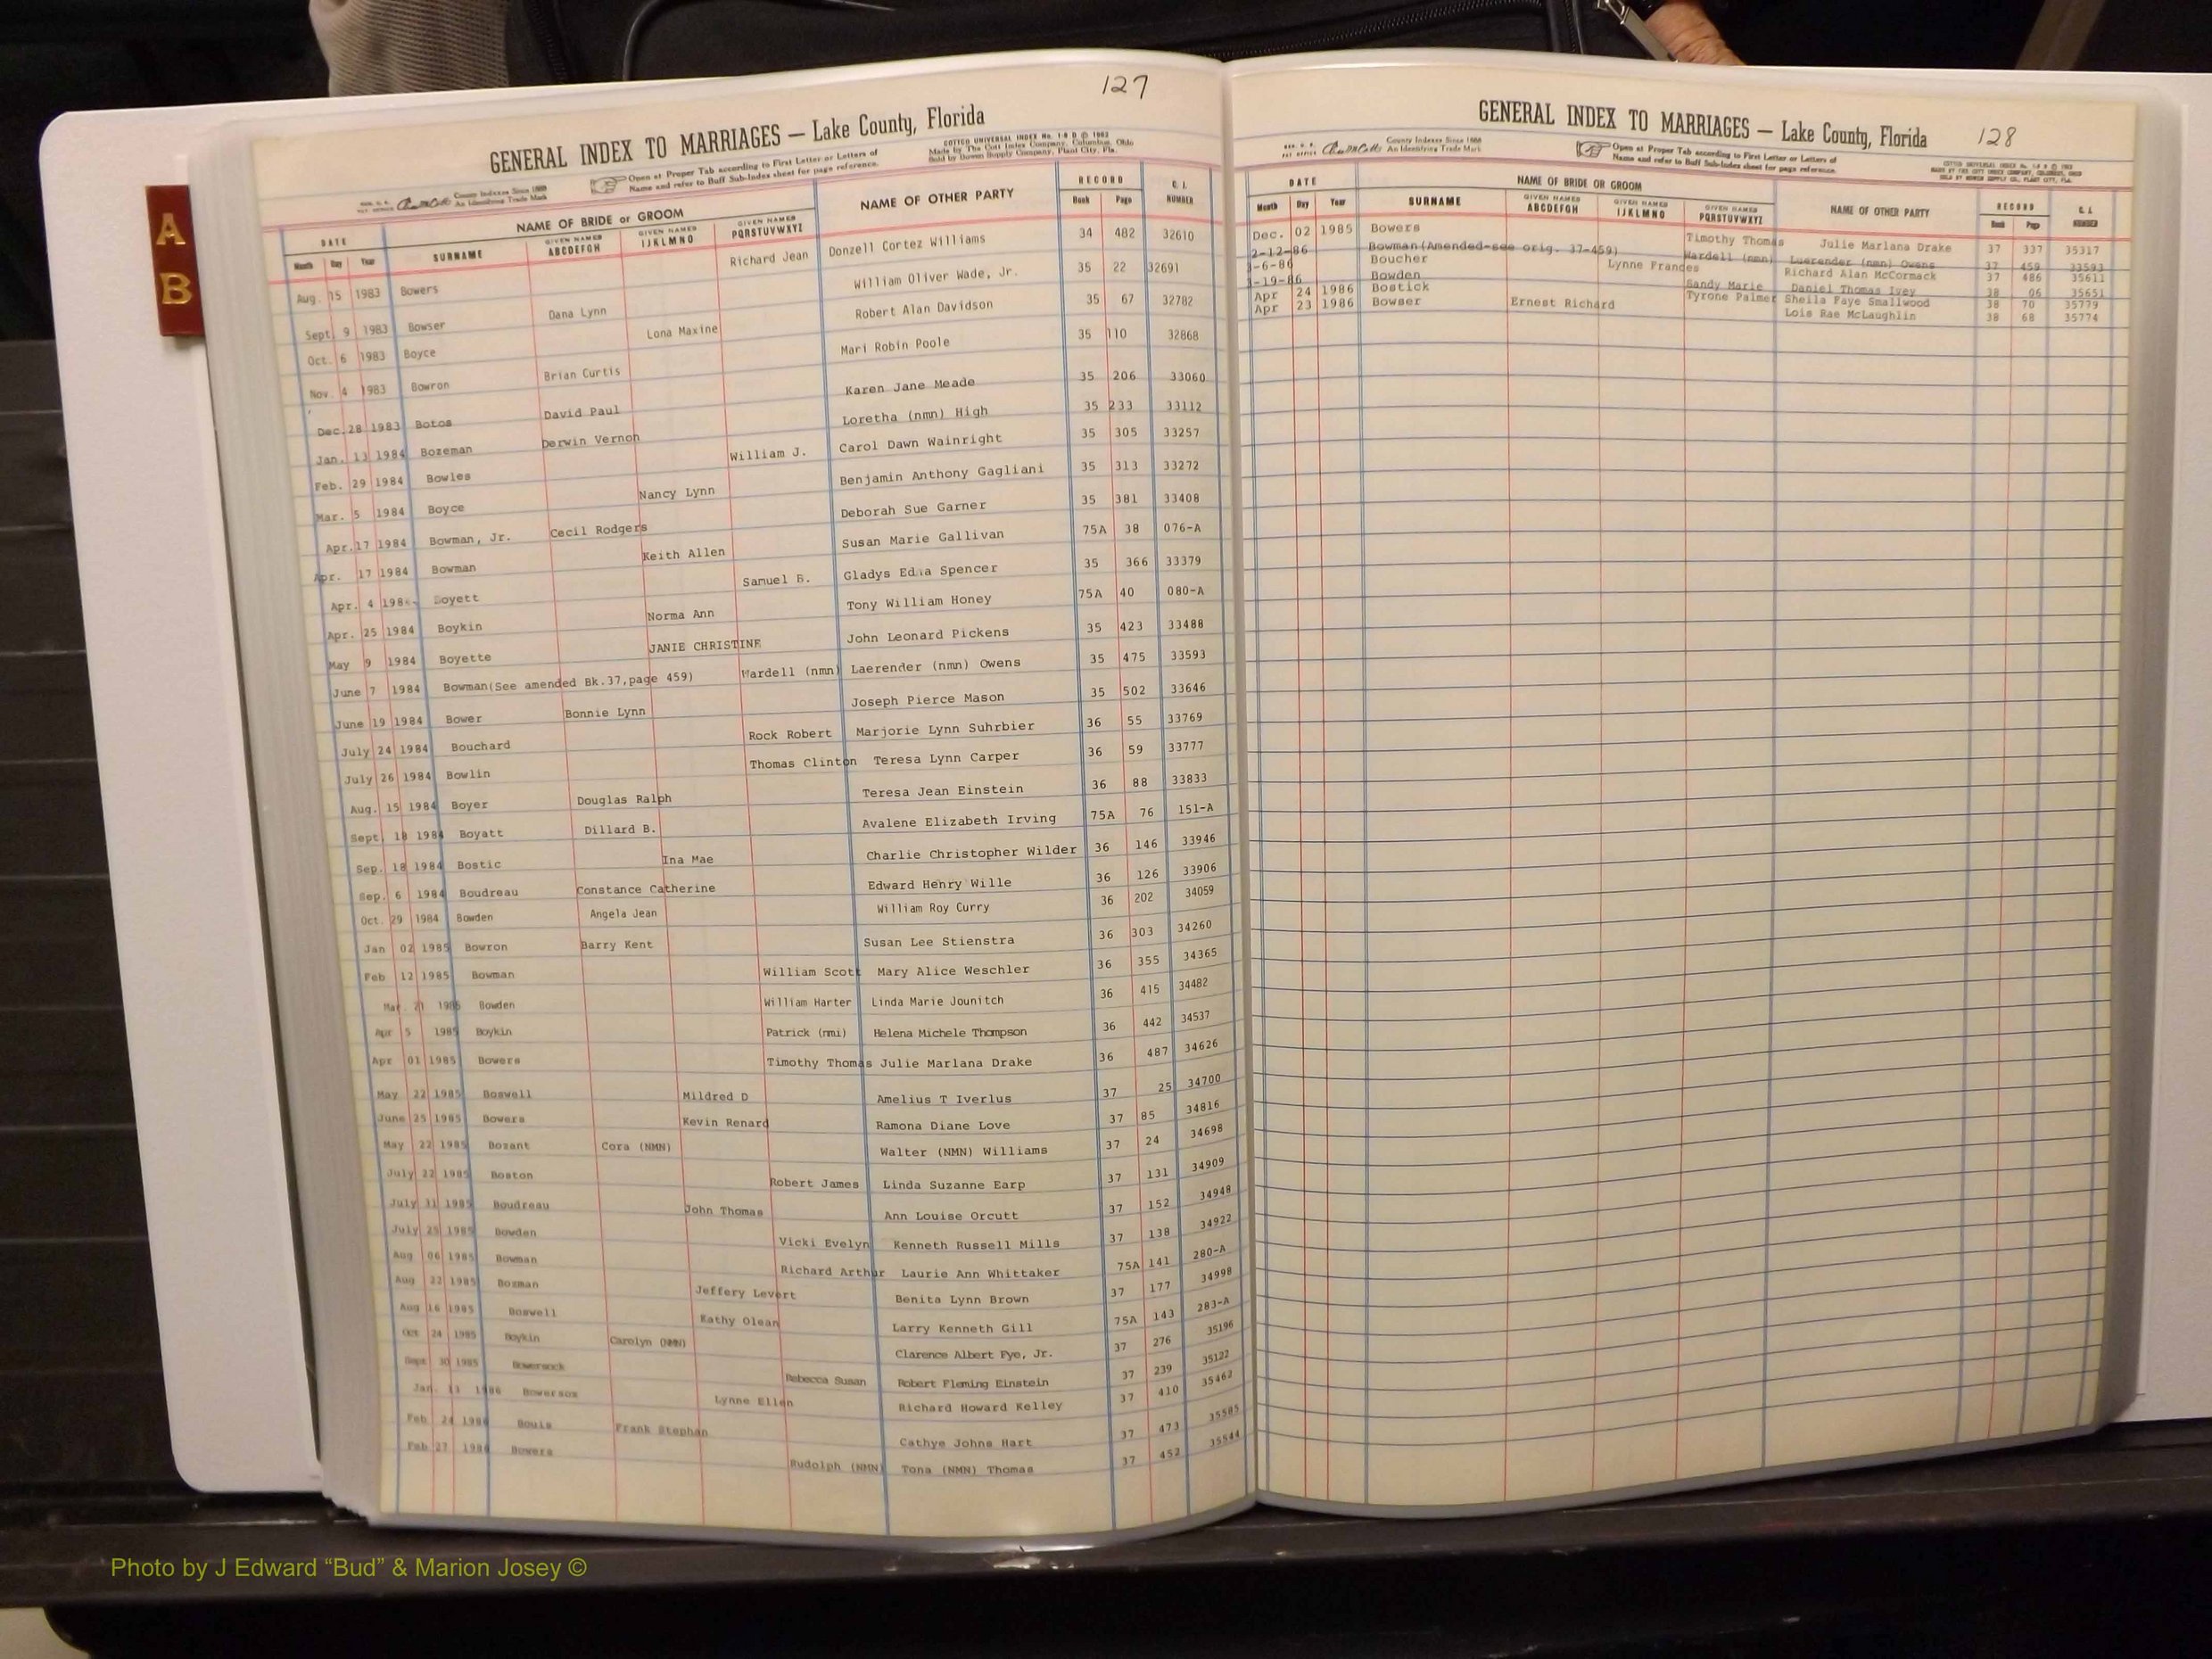 A
B
127
GENERAL INDEX TO MARRIAGES — Lake County, Florida
COTTCO UNIVERSAL INDEX No. 1-8 D © 1963
Made by The Cott Index Company, Columbus, Ohio
Sold by Bowen Supply Company, Plant City, Fla.
County Indexes Since 1888
An Identifying Trade Mark
Open at Proper Tab according to First Letter or Letters of
Name and refer to Buff Sub-Index sheet for page reference.
DATE NAME OF BRIDE or GROOM NAME OF OTHER PARTY RECORD C. I. NUMBER
Month Day Year SURNAME GIVEN NAMES ABCDEFGH GIVEN NAMES IJKLMNO GIVEN NAMES PQRSTUVWXYZ Book Page
Aug. 15 1983 Bowers Richard Jean Donzell Cortez Williams 34 482 32610
Sept. 9 1983 Bowser Dana Lynn William Oliver Wade, Jr. 35 22 32691
Oct. 6 1983 Boyce Lona Maxine Robert Alan Davidson 35 67 32782
Nov. 4 1983 Bowron Brian Curtis Mari Robin Poole 35 110 32868
Dec. 28 1983 Botos David Paul Karen Jane Meade 35 206 33060
Jan. 13 1984 Bozeman Derwin Vernon Loretha (nmn) High 35 233 33112
Feb. 29 1984 Bowles William J. Carol Dawn Wainright 35 305 33257
Mar. 5 1984 Boyce Nancy Lynn Benjamin Anthony Gagliani 35 313 33272
Apr. 17 1984 Bowman, Jr. Cecil Rodgers Deborah Sue Garner 35 381 33408
Apr. 17 1984 Bowman Keith Allen Susan Marie Gallivan 75A 38 076-A
Apr. 4 Boyett Samuel B. Gladys Spencer 35 366 33379
Apr. 25 1984 Boykin Norma Ann Tony William Honey 75A 40 080-A
May 9 1984 Boyette JANIE CHRISTINE John Leonard Pickens 35 423 33488
June 7 1984 Bowman(See amended Bk.37,page 459) Wardell (nmn) Laerender (nmn) Owens 35 475 33593
June 19 1984 Bower Bonnie Lynn Joseph Pierce Mason 35 502 33646
July 24 1984 Bouchard Rock Robert Marjorie Lynn Suhrbier 36 55 33769
July 26 1984 Bowlin Thomas Clinton Teresa Lynn Carper 36 59 33777
Aug. 15 1984 Boyer Douglas Ralph Teresa Jean Einstein 36 88 33833
Sept. 18 1984 Boyatt Dillard B. Avalene Elizabeth Irving 75A 76 151-A
Sep. 18 1984 Bostic Ina Mae Charlie Christopher Wilder 36 146 33946
Sep. 6 1984 Boudreau Constance Catherine Edward Henry Wille 36 126 33906
Oct. 29 1984 Bowden Angela Jean William Roy Curry 36 202 34059
Jan 02 1985 Bowron Barry Kent Susan Lee Stienstra 36 303 34260
Feb 12 1985 Bowman William Scott Mary Alice Weschler 36 355 34365
Mar. 21 1985 Bowden William Harter Linda Marie Jounitch 36 415 34482
Apr 5 1985 Boykin Patrick (nmi) Helena Michele Thompson 36 442 34537
Apr 01 1985 Bowers Timothy Thomas Julie Marlana Drake 36 487 34626
May 22 1985 Boswell Mildred D Amelius T Iverlus 37 25 34700
June 25 1985 Bowers Kevin Renard Ramona Diane Love 37 85 34816
May 22 1985 Bozant Cora (NMN) Walter (NMN) Williams 37 24 34698
July 22 1985 Boston Robert James Linda Suzanne Earp 37 131 34909
July 31 1985 Boudreau John Thomas Ann Louise Orcutt 37 152 34948
July 25 1985 Bowden Vicki Evelyn Kenneth Russell Mills 37 138 34922
Aug 06 1985 Bowman Richard Arthur Laurie Ann Whittaker 75A 141 280-A
Aug 22 1985 Bozman Jeffery Levert Benita Lynn Brown 37 177 34998
Aug 16 1985 Boswell Kathy Olean Larry Kenneth Gill 75A 143 283-A
Oct 24 1985 Boykin Carolyn (NMN) Clarence Albert Fye, Jr. 37 276 35196
Sept 30 1985 Bowersock Rebecca Susan Robert Fleming Einstein 37 239 35122
Jan. 13 1986 Bowersox Lynne Ellen Richard Howard Kelley 37 410 35462
Feb 24 1986 Bouis Frank Stephan Cathye Johns Hart 37 473 35585
Feb 27 1986 Bowers Rudolph (NMN) Tona (NMN) Thomas 37 452 35544
GENERAL INDEX TO MARRIAGES — Lake County, Florida
128
County Indexes Since 1888
An Identifying Trade Mark
Open at Proper Tab according to First Letter or Letters of
Name and refer to Buff Sub-Index sheet for page reference.
DATE NAME OF BRIDE OR GROOM NAME OF OTHER PARTY RECORD C. I. NUMBER
Month Day Year SURNAME GIVEN NAMES ABCDEFGH GIVEN NAMES IJKLMNO GIVEN NAMES PQRSTUVWXYZ Book Page
Dec. 02 1985 Bowers Timothy Thomas Julie Marlana Drake 37 337 35317
2-12-86 Bowman(Amended-see orig. 37-459) Wardell (nmn) Laerender (nmn) Owens 37 459 33593
3-6-86 Boucher Lynne Frances Richard Alan McCormack 37 486 35611
3-19-86 Bowden Sandy Marie Daniel Thomas Ivey 38 06 35651
Apr 24 1986 Bostick Tyrone Palmer Sheila Faye Smallwood 38 70 35779
Apr 23 1986 Bowser Ernest Richard Lois Rae McLaughlin 38 68 35774
Photo by J Edward “Bud” & Marion Josey ©